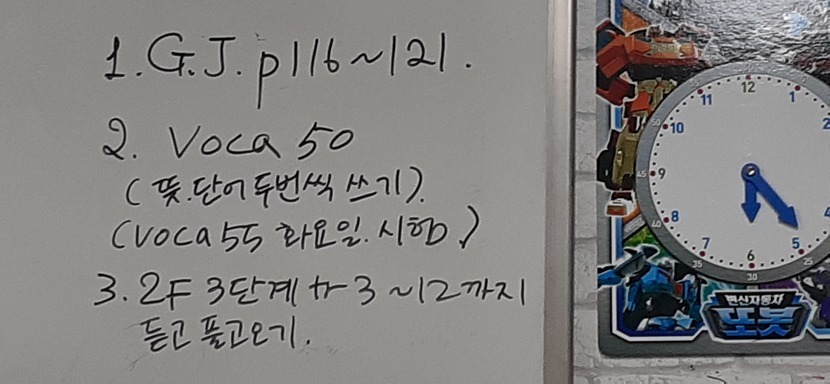 1. G.J. p116~121.
2. Voca 50
(뜻.단어 두번씩 쓰기).
(Voca 55 화요일. 시험.)
3. 2F 3단계 tr 3 ~12까지
듣고 풀고오기.
12
1
2
3
4
5
6
7
8
9
10
11
50
45
40
35
30
25
변신자동차
또봇